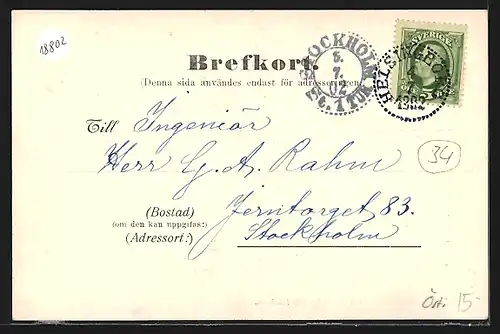 18802
STOCKHOLM
5.
7.
02
St. 1 TUR
SVERIGE
HELSINGBORG
1902
Brefkort.
(Denna sida användes endast för adresseringen.)
Till Ingeniör
Herr G. A. Rahm
34
(Bostad) Jerntorget 83.
(om den kan uppgifvas:)
(Adressort:) Stockholm
Öst. 15-